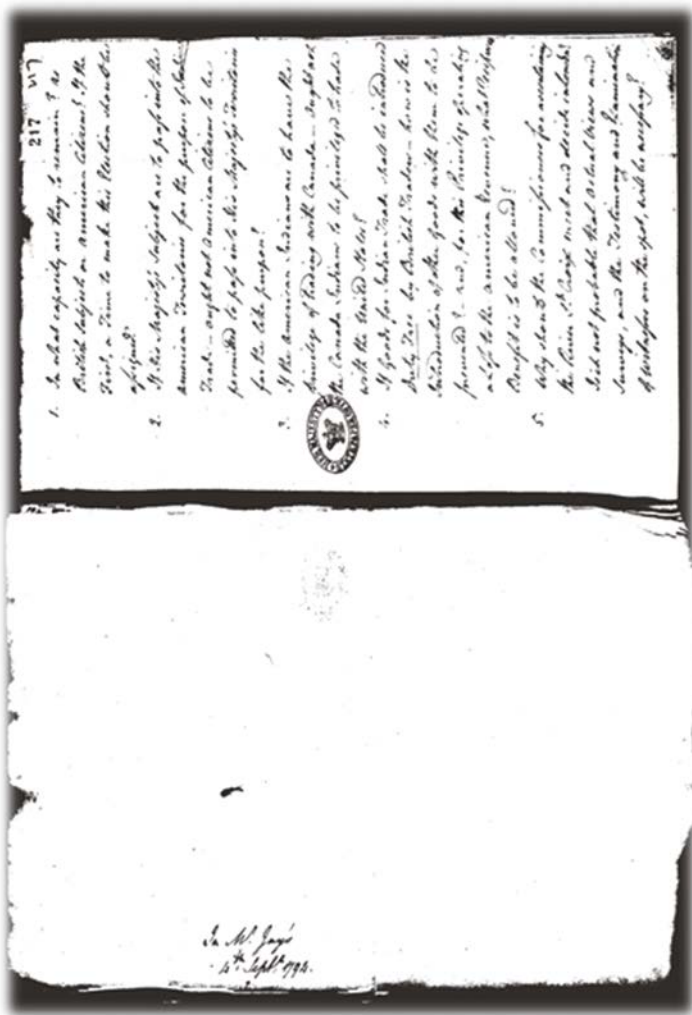 217 217
1. In what capacity are they to remain? as
British Subjects or American Citizens? If the
First, a Time to make this Election should be
assigned.
2. If His Majesty's Subjects are to pass into the
American Territories for the purpose of Indian
Trade — ought not American Citizens to be
permitted to pass into His Majesty's Territories
for the like purpose?
3. If the American Indians are to have the
privilege of Trading with Canada — ought not
the Canada Indians to be privileged to trade
with the United States?
4. If Goods for Indian Trade shall be introduced
Duty Free by British Traders — how is the
Introduction of other Goods with them to be
prevented? — and, for this Privilege operating
a loss to the American Revenue, what reciprocal
Benefit is to be allowed?
5. Why should the Commissioners for ascertaining
the River St. Croix meet and decide in London?
Is it not probable that actual Views and
Surveys, and the Testimony and Examination
of Witnesses on the spot, will be necessary?
In Mr. Jay's
4th Septr. 1794.